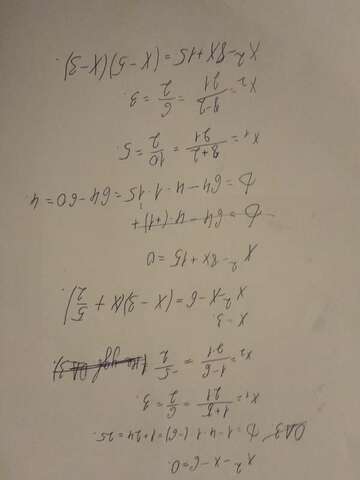 x²-x-6=0.
ОДЗ D=1-4·1·(-6)=1+24=25.
x₁=1+5/21=6/2=3.
x₂=1-6/21=-5/2
x-3.
x²-x-6=(x-3)(x+5/2)
x²-8x+15=0
D=64-4·(+1)+
D=64-4·1·15=64-60=4.
x₁=8+2/21=10/2=5.
x₂=8-2/21=6/2=3.
x²-8x+15=(x-5)(x-3).